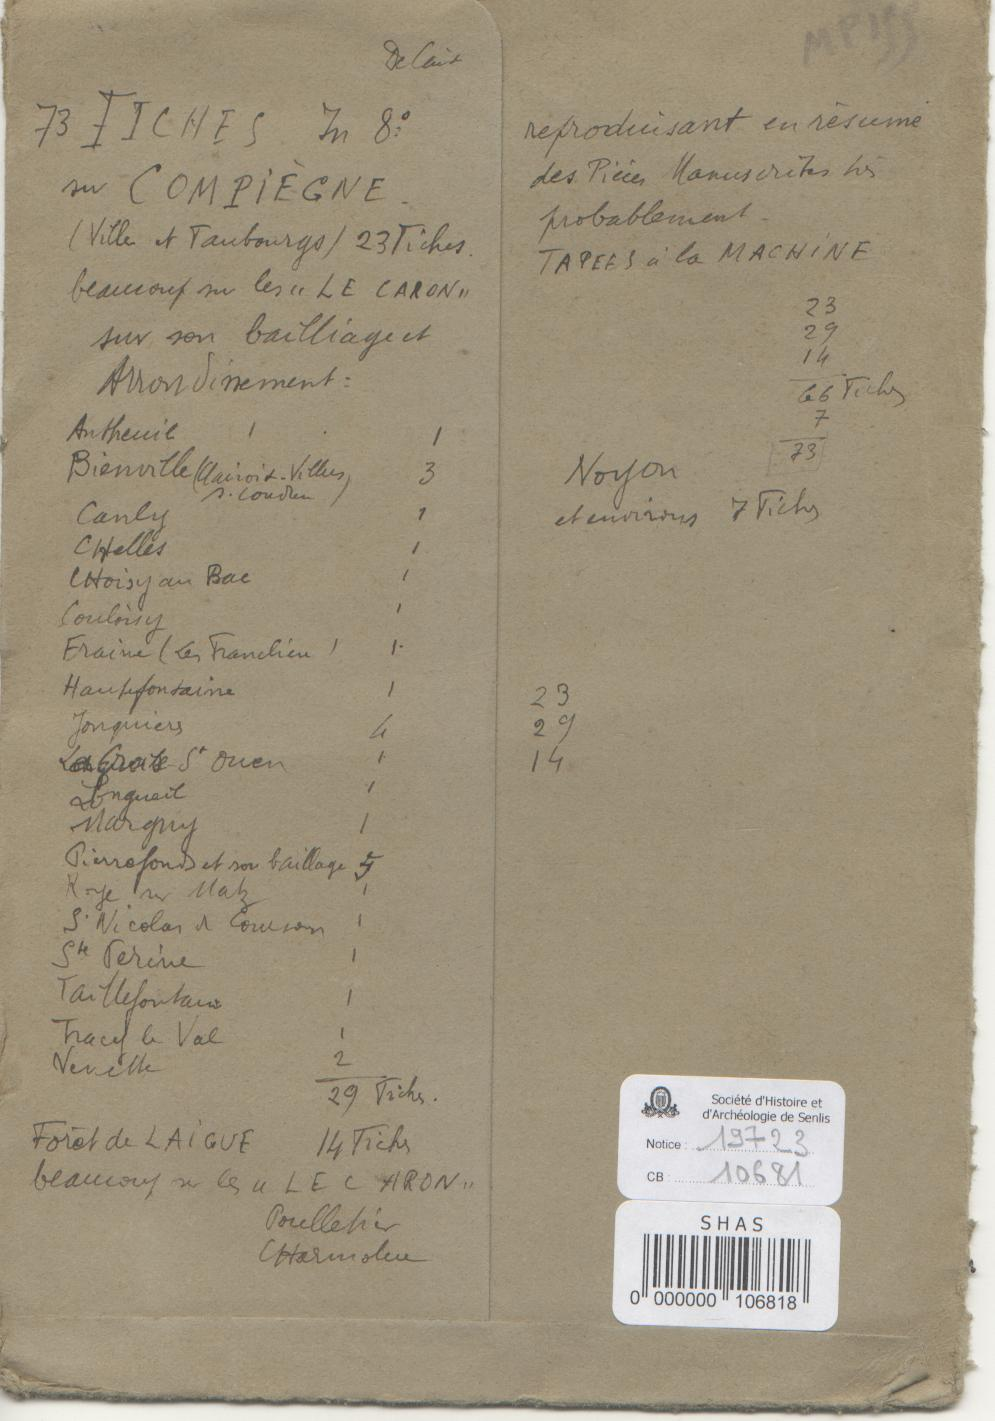 MP155
73 FICHES In 8:°
sur COMPIÈGNE.
(Ville et Faubourgs) 23 Fiches.
beaucoup sur les "LE CARON"
sur son bailliage et
Arrondissement:
Antheuil 1
Bienville (Clairoix-Villers
s. Coudun) 3
Canly 1
CHelles 1
CHoisy au Bac 1
Couloisy 1
Eraine (Les Franclieu) 1
Hautefontaine 1
Jonquieres 4
La Croix St Ouen 1
Longueil 1
Margny 1
Pierrefonds et son baillage 5
Roye sur Matz 1
St Nicolas de Courson 1
Ste Perine 1
Taillefontaine 1
Tracy le Val 1
Venette 2
29 Fiches.
Forêt de LAIGUE 14 Fiches
beaucoup sur les "LE CARON"
Poulletier
CHarmolue
reproduisant en résumé
des Pièces Manuscrites très
probablement
TAPEES à la MACHINE
23
29
14
66 Fiches
7
73
Noyon
et environs 7 Fiches
23
29
14
Société d'Histoire et
d'Archéologie de Senlis
Notice : 19723
CB : 10681
SHAS
0 000000 106818